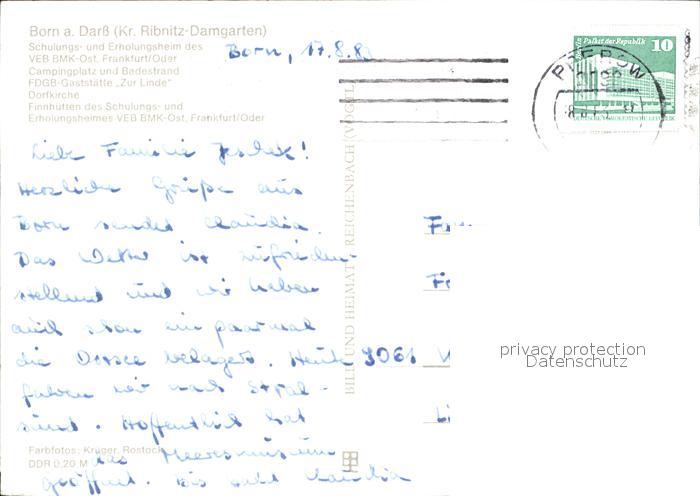 Born a. Darß (Kr. Ribnitz-Damgarten)
Schulungs- und Erholungsheim des
VEB BMK-Ost, Frankfurt/Oder
Campingplatz und Badestrand
FDGB-Gaststätte „Zur Linde"
Dorfkirche
Finnhütten des Schulungs- und
Erholungsheimes VEB BMK-Ost, Frankfurt/Oder
Born, 17.8.8
Palast der Republik 10
DEUTSCHE DEMOKRATISCHE REPUBLIK
PREROW
Liebe Familie
Herzliche Grüße aus
Born sendet Claudia.
Das Wetter ist zufrieden-
stellend und wir haben
auch schon ein paarmal
die Ostsee belagert. Heute
fahren wir nach Stral-
sund. Hoffentlich hat
das Meeresmuseum
geöffnet. Bis bald Claudia
BILD UND HEIMAT REICHENBACH (VOGTL
9061
privacy protection
Datenschutz
Farbfotos: Krüger, Rostock
DDR 0,20 M